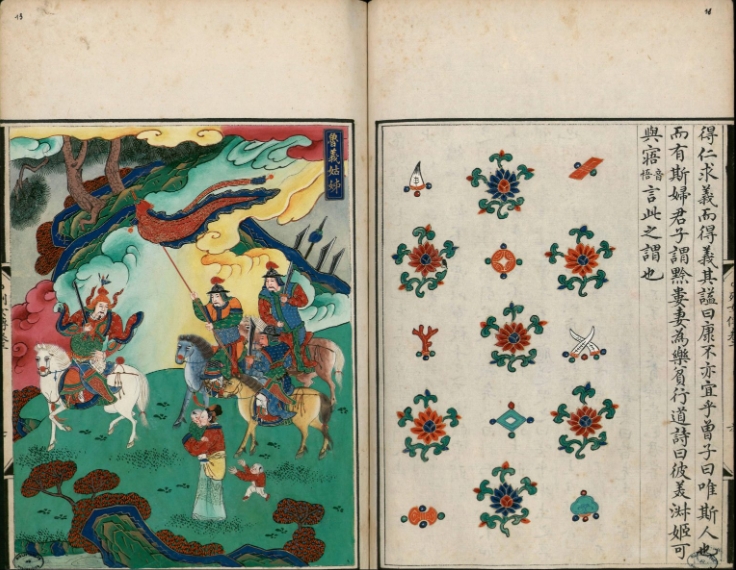 得仁求義而得義其謚曰康不亦宜乎曾子曰唯斯人也
而有斯婦君子謂黔婁妻為樂貧行道詩曰彼美淑姬可
與寤音悟言此之謂也
魯義姑姊